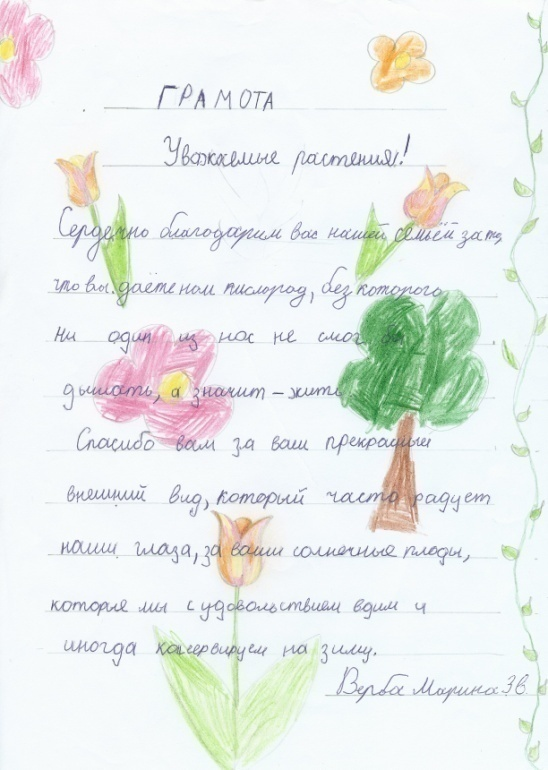 ГРАМОТА
Уважаемые растения!
Сердечно благодарим вас нашей семьёй за то,
что вы даёте нам кислород, без которого
ни один из нас не смог бы
дышать, а значит – жить.
Спасибо вам за ваш прекрасный
внешний вид, который часто радует
наши глаза, за ваши солнечные плоды,
которые мы с удовольствием едим и
иногда консервируем на зиму.
Верба Марина 3В